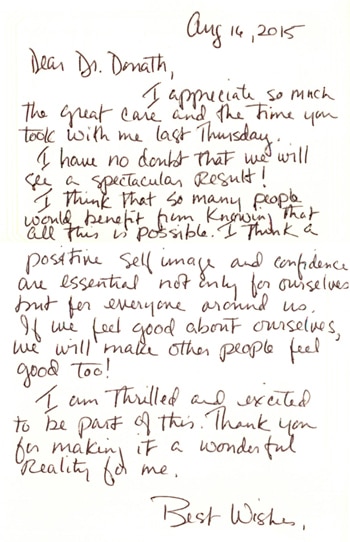 Aug 16, 2015
Dear Dr. Donath,
I appreciate so much
the great care and the time you
took with me last Thursday.
I have no doubt that we will
see a spectacular result!
I think that so many people
would benefit from knowing that
all this is possible. I think a
positive self image and confidence
are essential not only for ourselves
but for everyone around us.
If we feel good about ourselves,
we will make other people feel
good too!
I am thrilled and excited
to be part of this. Thank you
for making it a wonderful
reality for me.
Best Wishes,